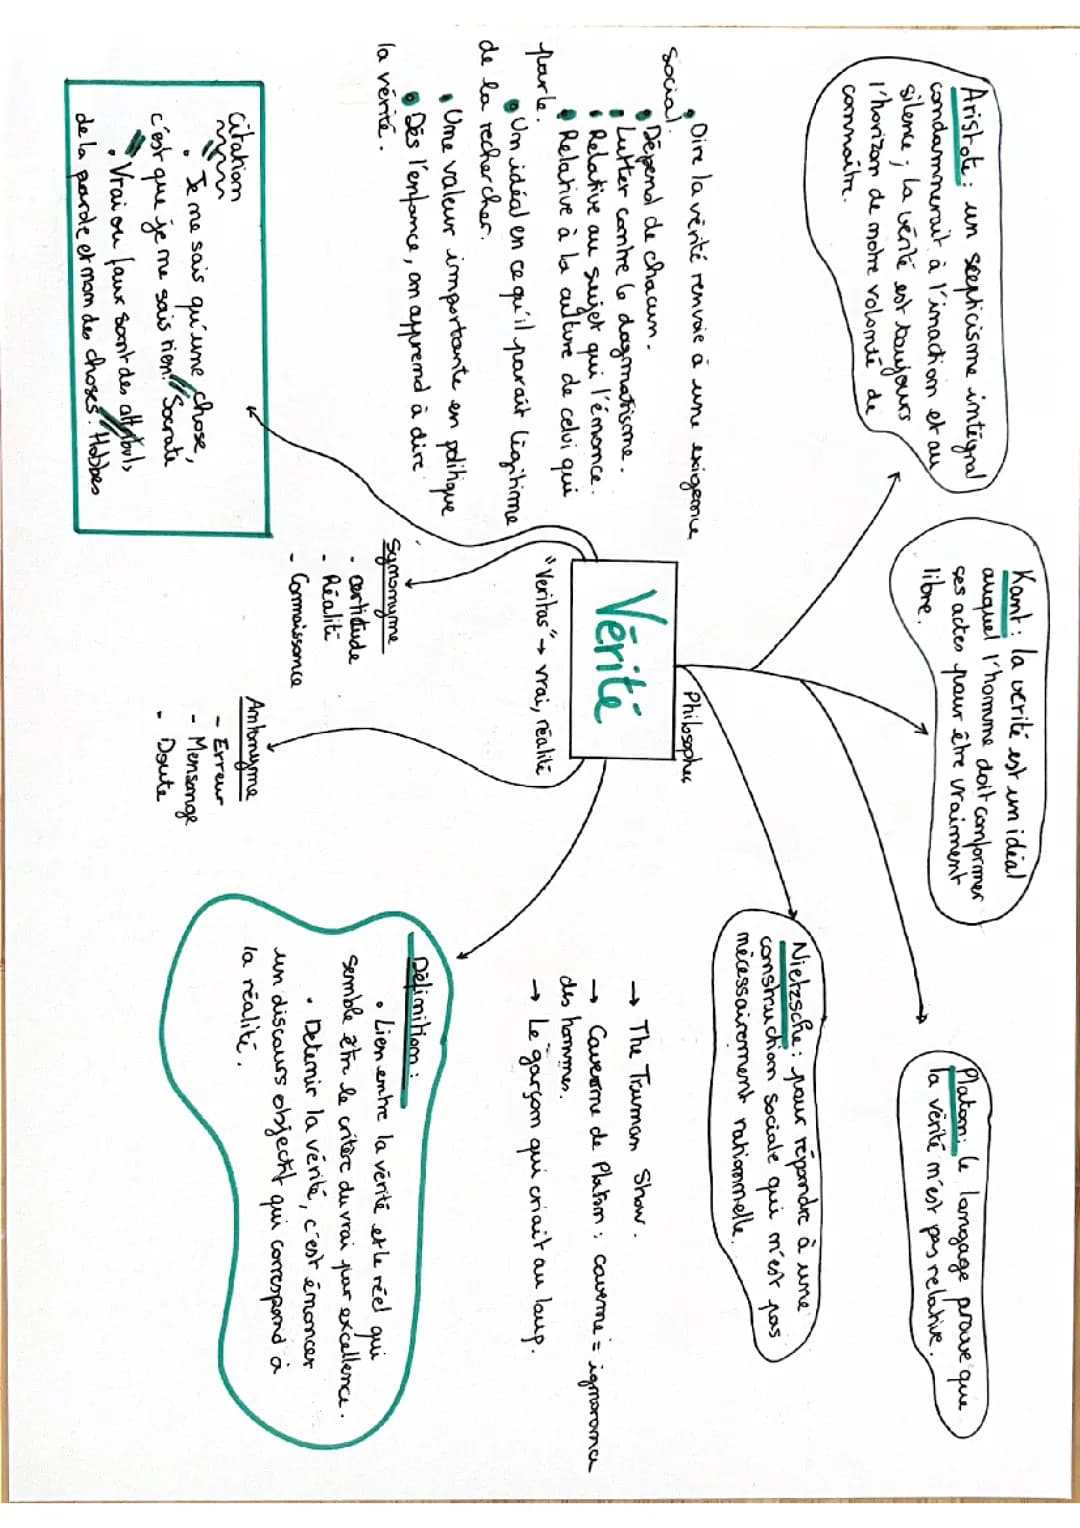 Aristote : un scepticisme intégral
condamnerait à l'inaction et au
silence ; la vérité est toujours
l'horizon de notre volonté de
connaître.
Kant : la verité est un idéal
auquel l'homme doit conformer
ses actes pour être vraiment
libre.
Platon : le langage prouve que
la vérité n'est pas relative.
Nietzsche : pour répondre à une
construction sociale qui n'est pas
nécessairement rationnelle.
Philosophes
Vérité
"Veritas" → vrai, réalité
• Dire la vérité renvoie à une exigence
social.
• Dépend de chacun.
• Lutter contre le dogmatisme.
• Relative au sujet qui l'énonce.
• Relative à la culture de celui qui
parle.
• Un idéal en ce qu'il parait légitime
de la rechercher.
• Une valeur importante en politique
• Dès l'enfance, on apprend à dire
la vérité.
→ The Truman Show.
→ Caverne de Platon : caverne = ignorance
des hommes.
→ Le garçon qui criait au loup.
Synonyme
- certitude
- Réalité
- Connaissance
Antonyme
- Erreur
- Mensonge
- Doute
Citation
• "Je ne sais qu'une chose,
c'est que je ne sais rien." Socrate
• "Vrai ou faux sont des attributs
de la parole et non des choses." Hobbes
Définition :
• Lien entre la vérité et le réel qui
semble être le critère du vrai par excellence.
• Detenir la vérité, c'est énoncer
un discours objectif qui correspond à
la réalité.